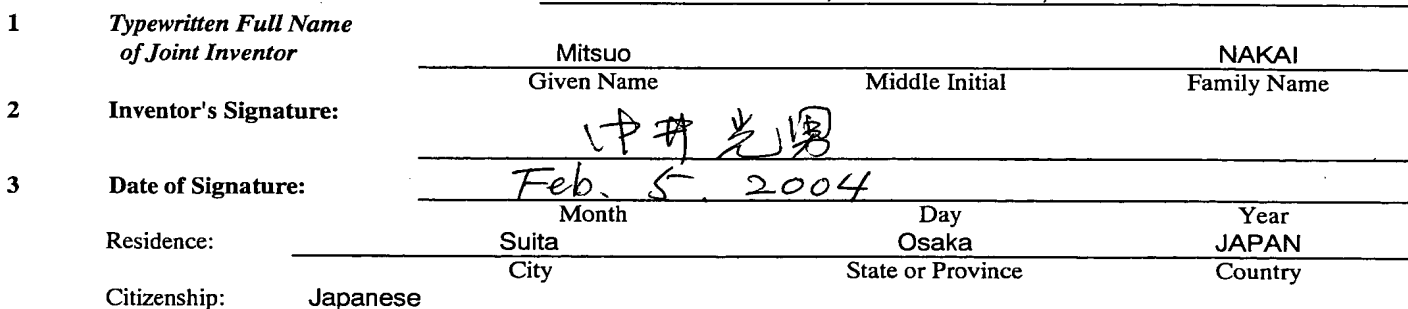 1 Typewritten Full Name
of Joint Inventor Mitsuo NAKAI
Given Name Middle Initial Family Name
2 Inventor's Signature:
中井 光男
3 Date of Signature: Feb. 5. 2004
Month Day Year
Residence: Suita Osaka JAPAN
City State or Province Country
Citizenship: Japanese